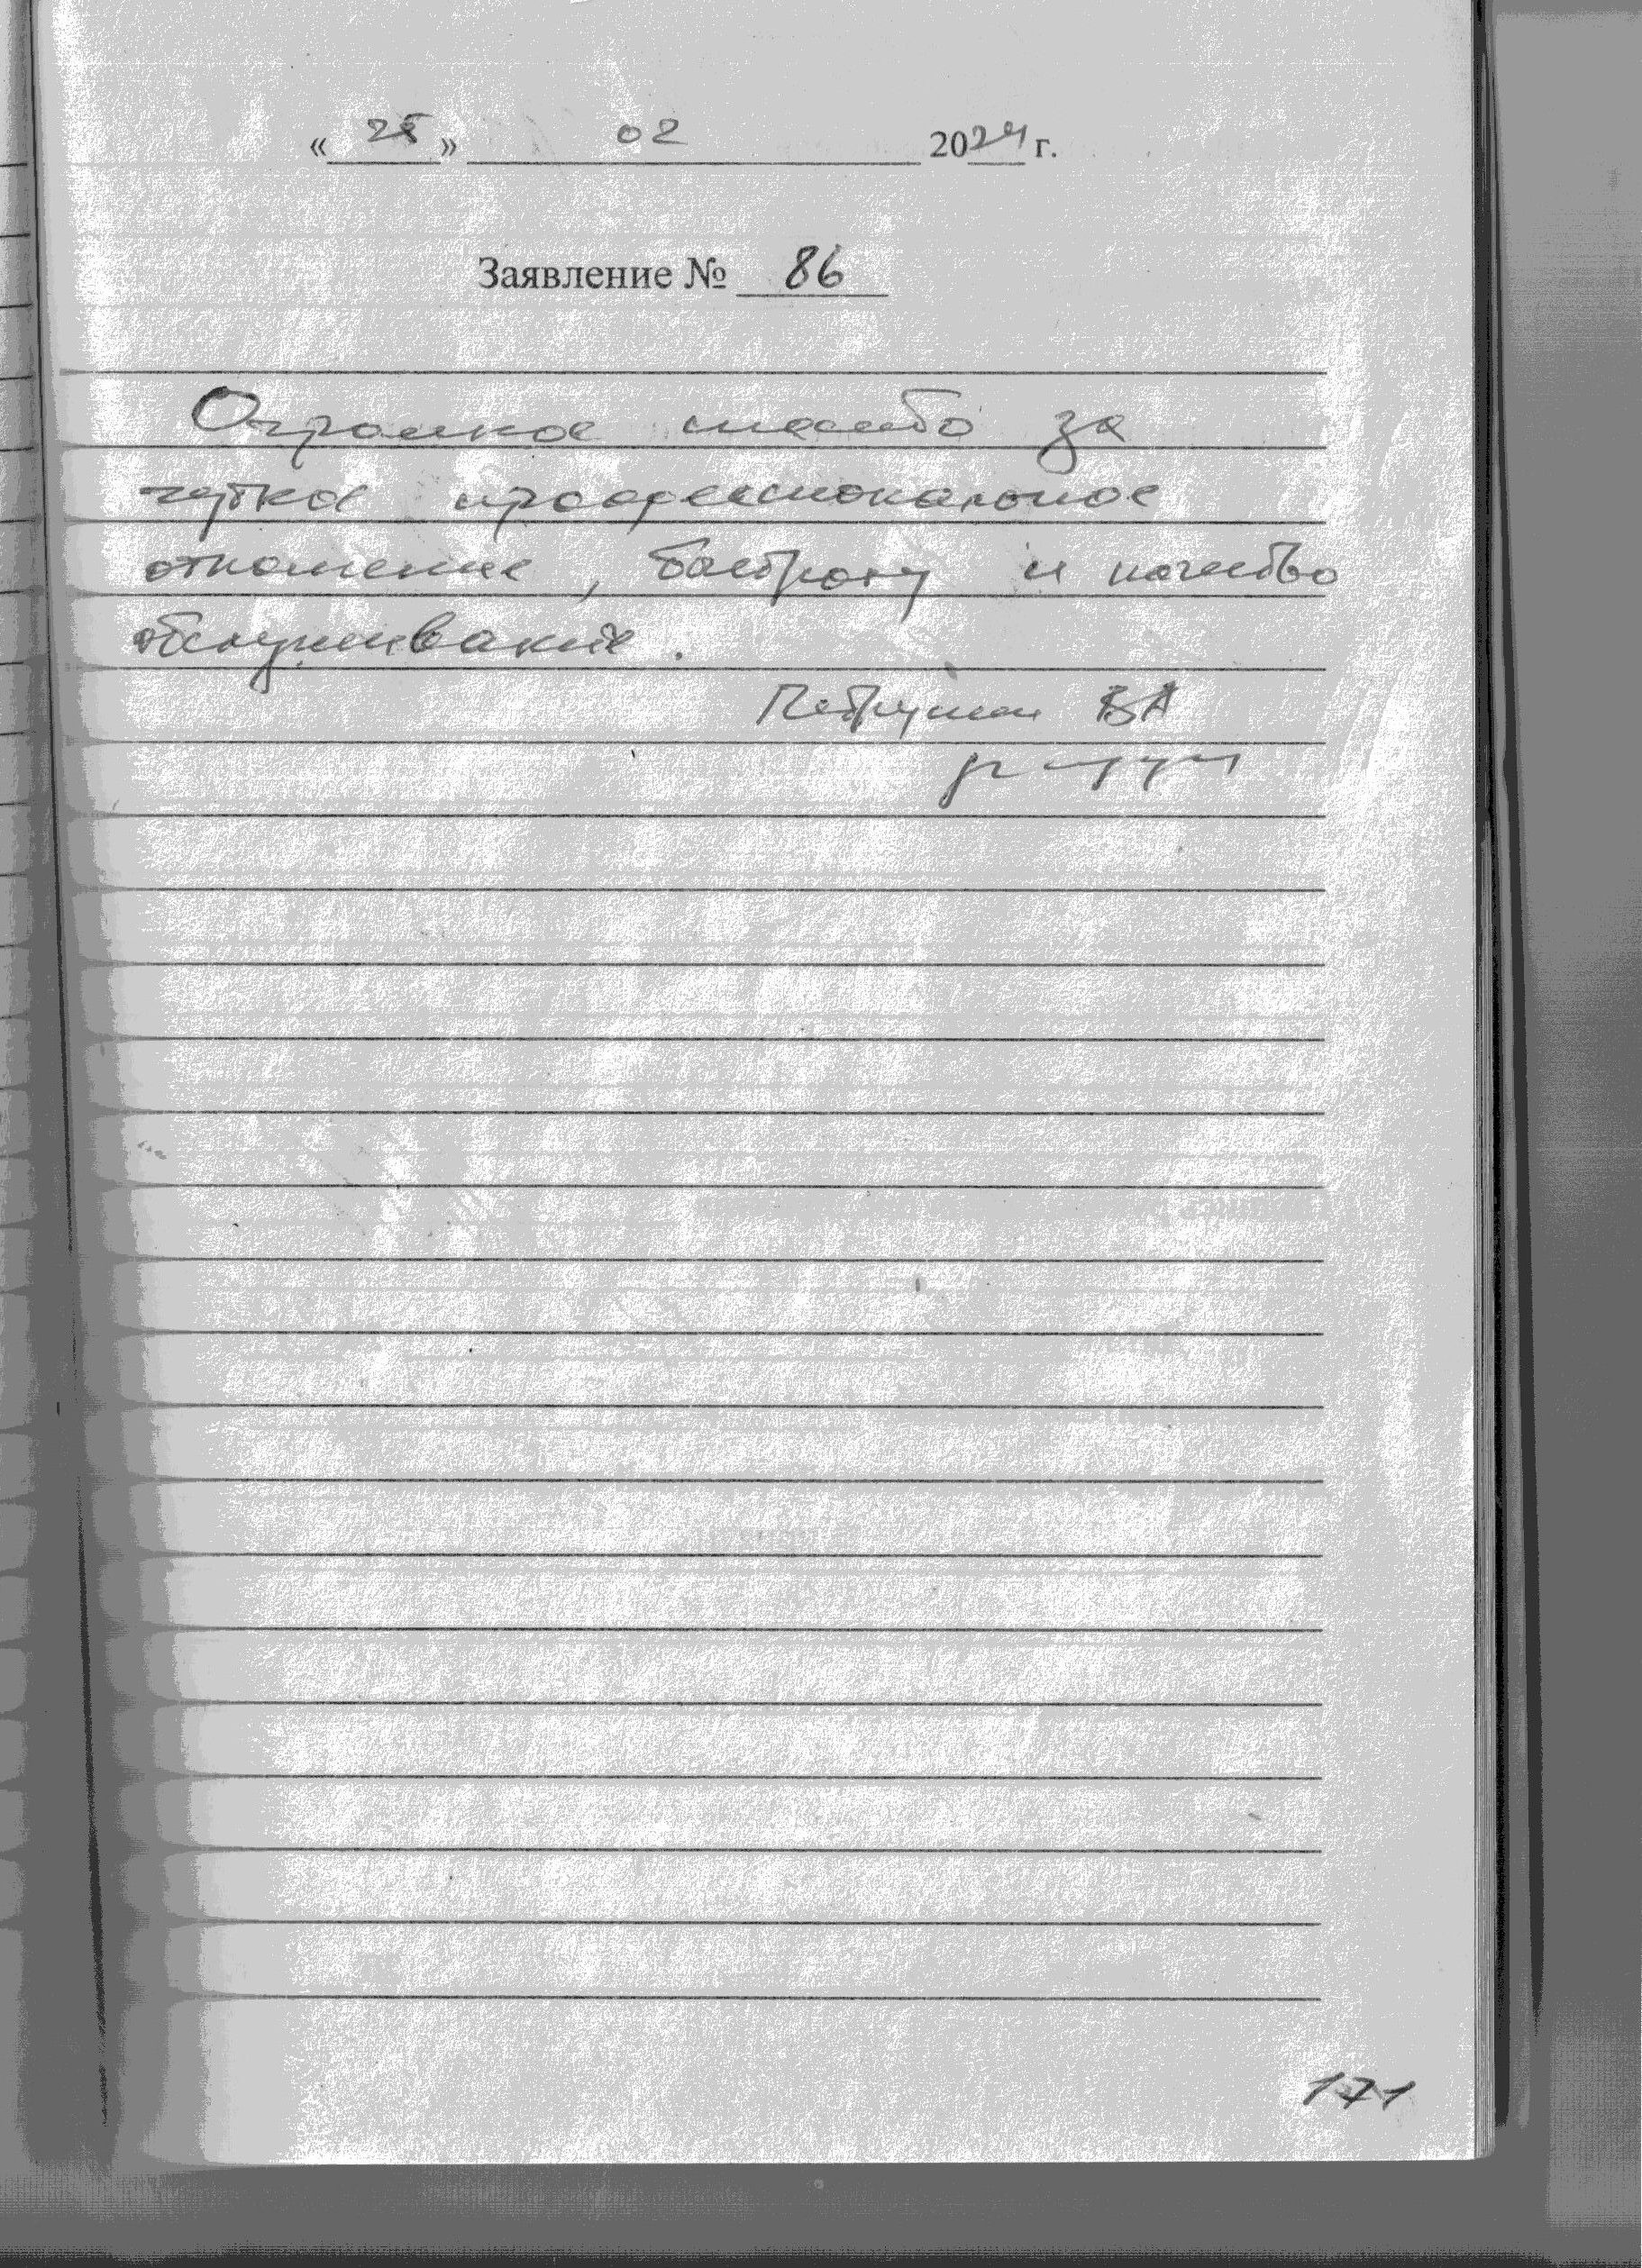 « 25 » 02 2024 г.
Заявление № 86
Огромное спасибо за
чуткое профессиональное
отношение, быстроту и качество
обслуживание.
ВА
171